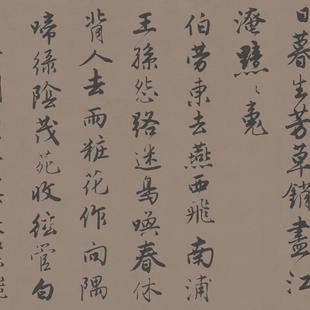 日暮生芳草銷盡江
淹黯〻魂
伯勞東去燕西飛南浦
王孫怨路迷鳥喚春休
背人去雨粧花作向隅
啼綠陰茂苑收絃管白